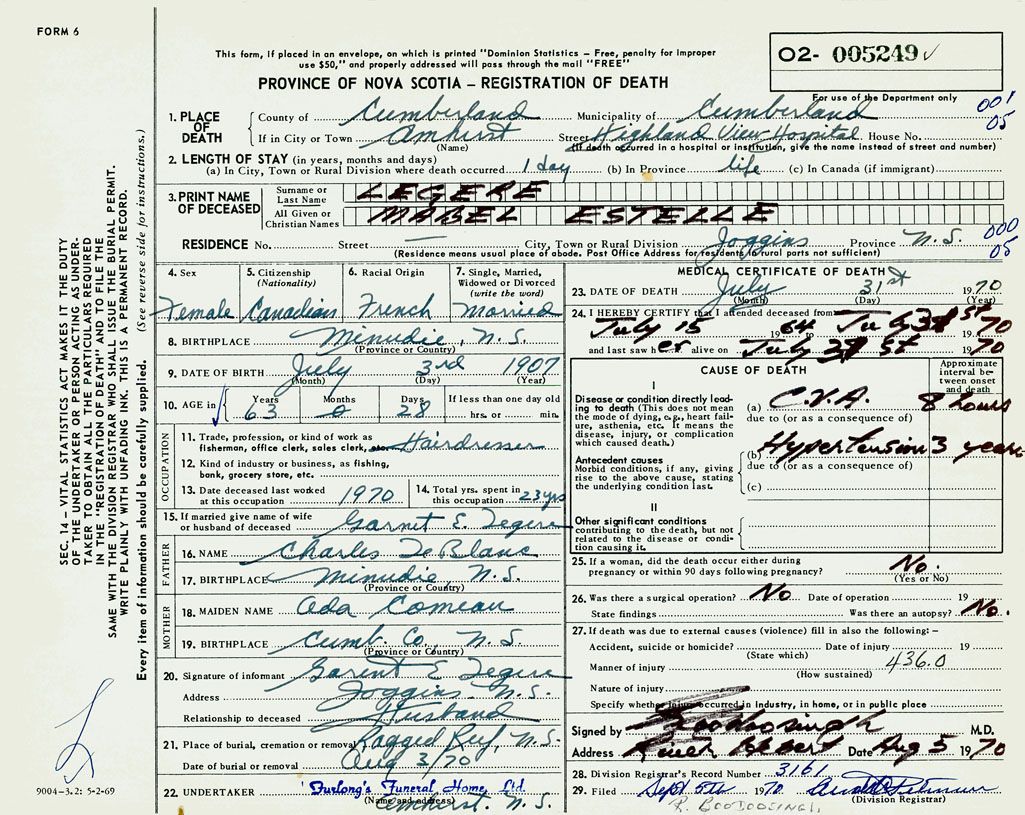 FORM 6
This form, if placed in an envelope, on which is printed "Dominion Statistics – Free, penalty for improper
use $50," and properly addressed will pass through the mail "FREE"
PROVINCE OF NOVA SCOTIA – REGISTRATION OF DEATH
02- 005249
For use of the Department only
001
05
1. PLACE OF DEATH
County of Cumberland Municipality of Cumberland
If in City or Town Amhirst Street Highland View Hospital House No.
(Name) (If death occurred in a hospital or institution, give the name instead of street and number)
2. LENGTH OF STAY (in years, months and days)
(a) In City, Town or Rural Division where death occurred 1 day (b) In Province life (c) In Canada (if immigrant)
3. PRINT NAME OF DECEASED
Surname or Last Name LEGERE
All Given or Christian Names MABEL ESTELLE
RESIDENCE No. Street — City, Town or Rural Division Joggins Province N.S.
000
05
(Residence means usual place of abode. Post Office Address for residents in rural parts not sufficient)
4. Sex
Female
5. Citizenship
(Nationality)
Canadian
6. Racial Origin
French
7. Single, Married,
Widowed or Divorced
(write the word)
Married
8. BIRTHPLACE Minudie, N.S.
(Province or Country)
9. DATE OF BIRTH July 3rd 1907
(Month) (Day) (Year)
10. AGE in Years Months Days If less than one day old
63 0 28 hrs. or min.
OCCUPATION
11. Trade, profession, or kind of work as
fisherman, office clerk, sales clerk, Hairdresser
12. Kind of industry or business, as fishing,
bank, grocery store, etc.
13. Date deceased last worked
at this occupation 1970
14. Total yrs. spent in
this occupation 23 yrs
15. If married give name of wife
or husband of deceased Garnet E. Legere
FATHER
16. NAME Charles LeBlanc
17. BIRTHPLACE Minudie, N.S.
(Province or Country)
MOTHER
18. MAIDEN NAME Ada Comeau
19. BIRTHPLACE Cumb. Co., N.S.
(Province or Country)
20. Signature of informant Garnet E Legere
Address Joggins N.S.
Relationship to deceased Husband
21. Place of burial, cremation or removal Ragged Reef, N.S.
Date of burial or removal Aug 3/70
22. UNDERTAKER Furlong's Funeral Home, Ltd.
(Name and address) Amherst, N.S.
MEDICAL CERTIFICATE OF DEATH
23. DATE OF DEATH July 31st 1970
(Month) (Day) (Year)
24. I HEREBY CERTIFY that I attended deceased from
July 15 1964 July 31st 1970
and last saw her alive on July 31st 1970
CAUSE OF DEATH
Approximate
interval be-
tween onset
and death
I
Disease or condition directly lead-
ing to death (This does not mean
the mode of dying, e.g., heart fail-
ure, asthenia, etc. It means the
disease, injury, or complication
which caused death.)
(a) C.V.A. 8 hours
due to (or as a consequence of)
(b) Hypertension 3 years
due to (or as a consequence of)
(c)
Antecedent causes
Morbid conditions, if any, giving
rise to the above cause, stating
the underlying condition last.
II
Other significant conditions
contributing to the death, but not
related to the disease or condi-
tion causing it.
25. If a woman, did the death occur either during
pregnancy or within 90 days following pregnancy? No.
(Yes or No)
26. Was there a surgical operation? No Date of operation 19
State findings Was there an autopsy? No.
27. If death was due to external causes (violence) fill in also the following:–
Accident, suicide or homicide? Date of injury 19
(State which)
Manner of injury 436.0
(How sustained)
Nature of injury
Specify whether injury occurred in industry, in home, or in public place
Signed by Boodoosingh M.D.
Address River Hebert Date Aug 5 1970
28. Division Registrar's Record Number 3161
29. Filed Sept 5th 1970
(Division Registrar)
R. BOODOOSINGH
SEC. 14 – VITAL STATISTICS ACT MAKES IT THE DUTY
OF THE UNDERTAKER OR PERSON ACTING AS UNDER-
TAKER TO OBTAIN ALL THE PARTICULARS REQUIRED
IN THE "REGISTRATION OF DEATH" AND TO FILE THE
SAME WITH THE DIVISION REGISTRAR WHO SHALL ISSUE THE BURIAL PERMIT.
WRITE PLAINLY WITH UNFADING INK. THIS IS A PERMANENT RECORD.
Every item of information should be carefully supplied. (See reverse side for instructions.)
9004-3.2: 5-2-69